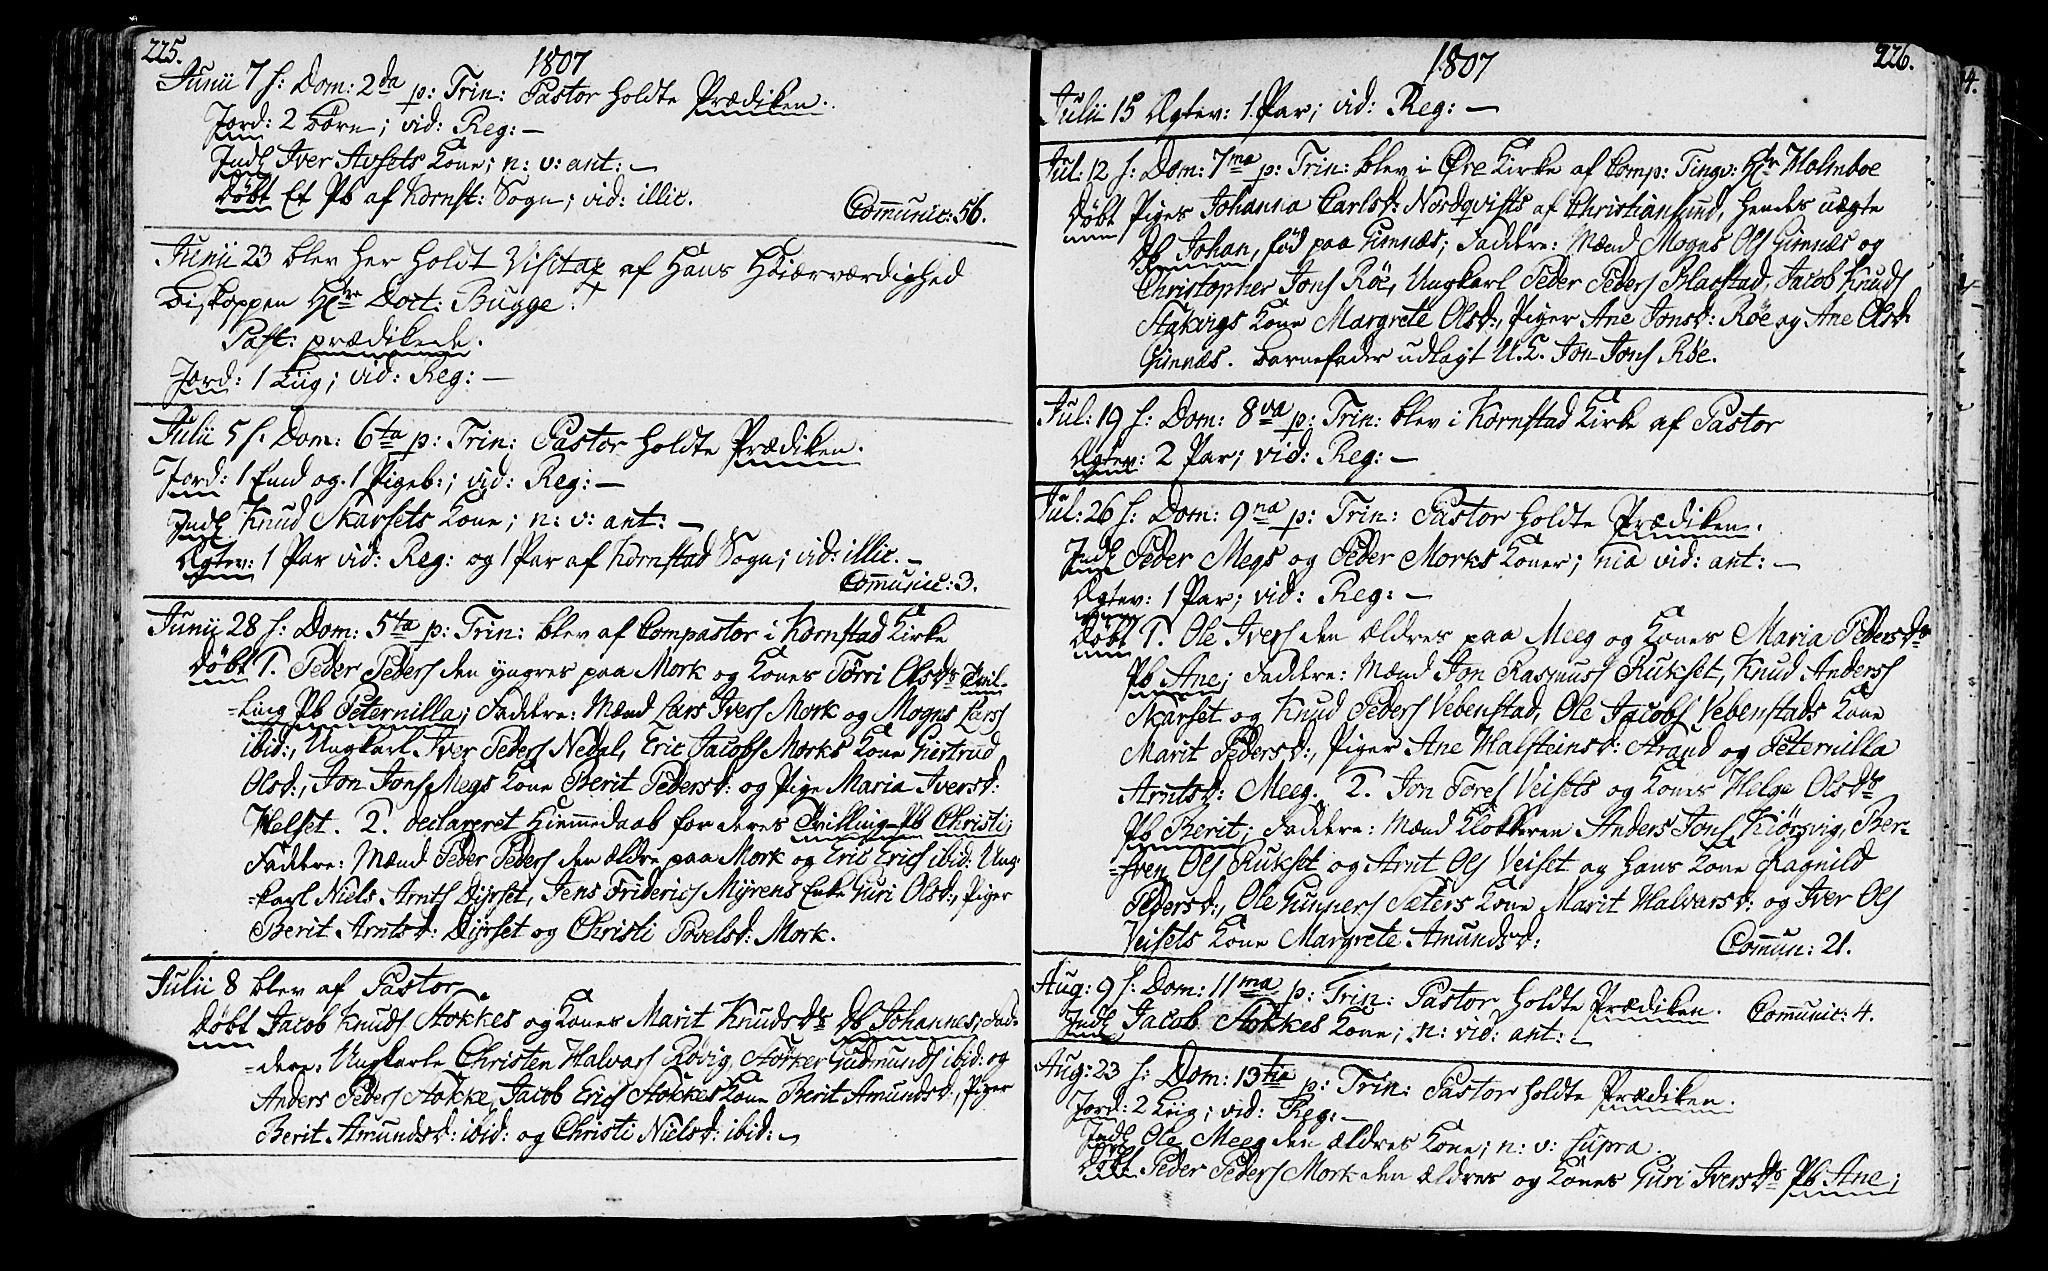 225.
1807
Junii 7 s: Dom: 2da p: Trin: Pastor holdte Prædiken.
Jord: 2 Børn; vid: Reg: —
Indl Iver Avsets Kone; n: v: ant: —
Døbt Et Pb af Kornst: Sogn; vid: illic.
Com̄unic: 56.
Junii 23 blev her holdt Visitaz af Hans Høiærværdighed
Biskoppen Hr Doct: Bugge.
Past: prædikede.
Jord: 1 Liig; vid: Reg: —
Julii 5 s: Dom: 6ta p: Trin: Pastor holdte Prædiken.
Jord: 1 Enke og 1 Pigeb:; vid: Reg: —
Indl Knud Skarsets Kone; n: v: ant: —
Ægtev: 1 Par vid: Reg: og 1 Par af Kornstad Sogn; vid: illic. —
Com̄unic: 3.
Junii 28 s: Dom: 5ta p: Trin: blev af Compastor i Kornstad Kirke
Døbt 1. Peder Peders den yngres paa Mork og Kones Torri Olsdr Tvil-
-ling Pb Peternilla; Faddere: Mænd Lars Ivers Mork og Mogns Lars
ibid:, Ungkarl Iver Peders Nedal, Eric Jacobs Morks Kone Giertrud
Olsd:, Jon Jons Megs Kone Berit Pedersd: og Pige Maria Iversd:
Helset. 2. declareret Hiem̄edaab for deres Tvilling-Pb Christi;
Faddere: Mænd Peder Peders den ældre paa Mork og Eric Erics ibid: Ung-
-karl Niels Arnts Dyrset, Jens Friderics Myrens Enke Guri Olsd:, Piger
Berit Arntsd: Dyrset og Christi Povelsd: Mork.
Julii 8 blev af Pastor
Døbt Jacob Knuds Stokkes og Kones Marit Knudsdr Db Johannes; Fad-
-dere: Ungkarle Christen Halvars Røvig, Størker Gudmunds ibid: og
Anders Peders Stokke, Jacob Erics Stokkes Kone Berit Amundsd:, Piger
Berit Amundsd: ibid: og Christi Nielsd: ibid: —
1807
226.
Julii 15 Ægtev: 1 Par; vid: Reg: —
Jul: 12 s: Dom: 7ma p: Trin: blev i Øre Kirke af Comp: Tingv: Hr Holmboe
Døbt Piges Johanna Carlsd: Nordqvists af Christiansund, hendes uægte
Db Johan, fød paa Gimnæs; Faddere: Mænd Mogns Ols Gimnæs og
Christopher Jons Røe, Ungkarl Peder Peders Blaestad, Jacob Knuds
Stakvigs Kone Margrete Olsd:, Piger Ane Jonsd: Røe og Ane Olsd:
Gimnæs. Barnefader udlagt U.K. Jon Jons Røe.
Jul: 19 s: Dom: 8va p: Trin: blev i Kornstad Kirke af Pastor
Ægtev: 2 Par; vid: Reg: —
Jul: 26 s: Dom: 9na p: Trin: Pastor holdte Prædiken.
Indl Peder Megs og Peder Morks Koner; nia vid: ant: —
Ægtev: 1 Par; vid: Reg: —
Døbt 1. Ole Ivers den ældres paa Meeg og Kones Maria Pedersdr
Pb Ane; Faddere: Mænd Jon Rasmuss Rukset, Knud Anders
Skarset og Knud Peders Vebenstad, Ole Jacobs Vebenstads Kone
Marit Pedersd:, Piger Ane Halsteinsd: Strand og Peternilla
Arntsd: Meeg. 2. Jon Tores Veisets og Kones Helge Olsdr
Pb Berit; Faddere: Mænd Klokkeren Anders Jons Kiørsvig, Ber-
-sven Ols Rukset og Arnt Ols Veiset og hans Kone Ragnild
Pedersd:, Ole Gunners Sæters Kone Marit Halvarsd: og Iver Ols
Veisets Kone Margrete Amundsd:
Com̄un: 21.
Aug: 9 s: Dom: 11ma p: Trin: Pastor holdte Prædiken. Com̄unic: 4.
Indl Jacob Stokkes Kone; n: vid: ant: —
Aug: 23 s: Dom: 13tia p: Trin: Pastor holdte Prædiken.
Jord: 2 Liig; vid: Reg: —
Indl Ole Meeg den ældres Kone; n: v: supra.
Døbt Peder Peders Mork den ældres og Kones Guri Iversdr Pb Ane;